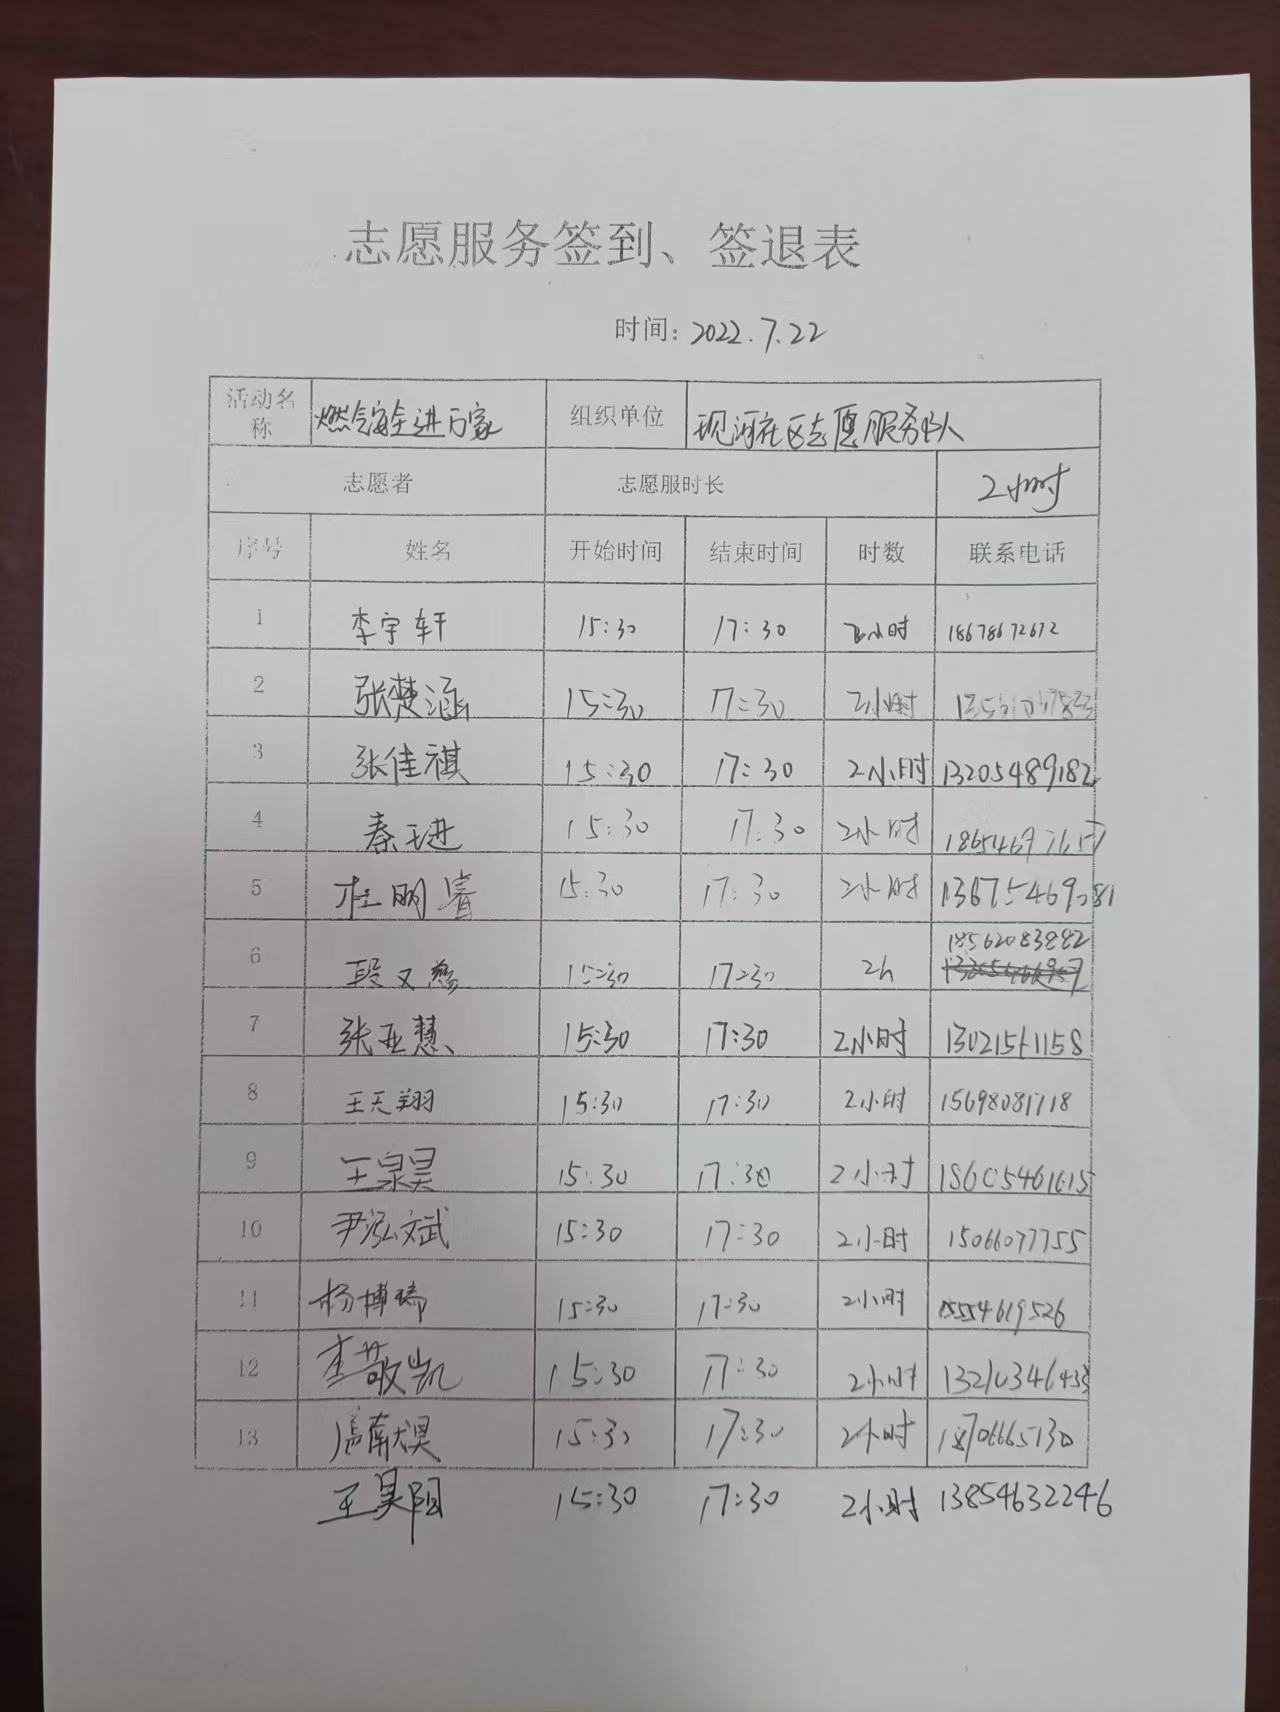 志愿服务签到、签退表
时间：2022.7.22
活动名称 燃气安全进万家 组织单位 现河社区志愿服务队
志愿者 志愿服时长 2小时
序号 姓名 开始时间 结束时间 时数 联系电话
1 李宇轩 15:30 17:30 2小时 18678672672
2 张楚涵 15:30 17:30 2小时
3 张佳祺 15:30 17:30 2小时 13205489182
4 秦 15:30 17:30 2小时
5 杜明睿 15:30 17:30 2小时 13675469081
6 段又 15:30 17:30 2h 18562083882
7 张亚慧 15:30 17:30 2小时 13021511158
8 王天翔 15:30 17:30 2小时 15698081718
9 王泉昊 15:30 17:30 2小时 18605461615
10 尹泓文斌 15:30 17:30 2小时 15066077755
11 杨博瑞 15:30 17:30 2小时 15554619526
12 李敬凯 15:30 17:30 2小时
13 15:30 17:30 2小时 18706665130
王昊阳 15:30 17:30 2小时 13854632246